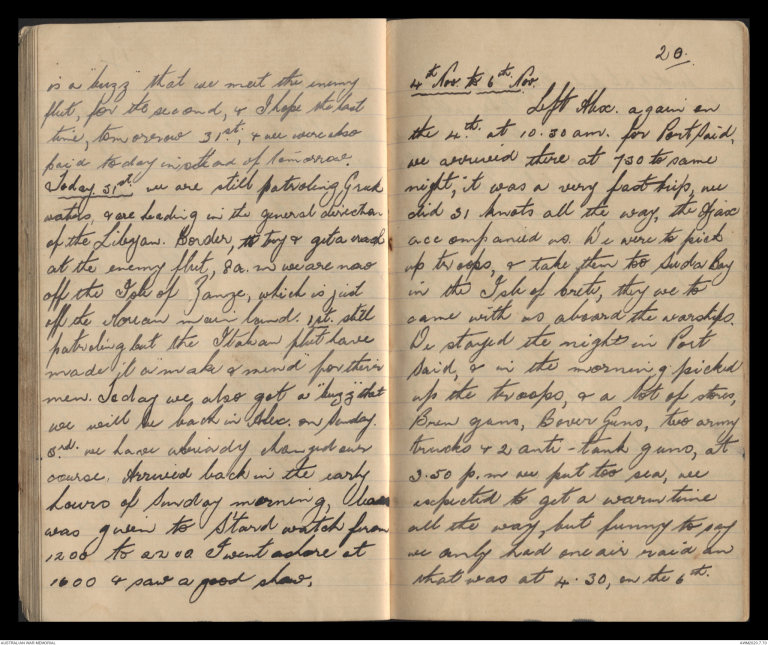 is a "buzz" that we meet the enemy
flut, for the second, & I hope the last
time, tomorrow 31st, & we were also
paid today instead of tomorrow.
Today 31st we are still patroling Greek
waters, & are heading in the general direction
of the Libyan. Border, to try & get a crack
at the enemy flut, 8a.m we are now
off the Isle of Zanze, which is just
off the main land. 1st. still
patroling but the Italian flut have
made it a & mend for their
men. Today we also got a "buzz" that
we will be back in Alex. on Sunday.
3rd. we have already changed our
course. Arrived back in the early
hours of Sunday morning, leave
was given to Stard watch from
1200 to 2200 I went ashore at
1600 & saw a good show.
20.
4th Nov. to 6th Nov.
Left Alex. again on
the 4th. at 10.30 am. for Port Said,
we arrived there at 730 to same
night, it was a very fast trip, we
did 31 knots all the way, the Ajax
accompanied us. We were to pick
up troops, & take them to Suda Bay
in the Isle of Crete, they we to
came with us aboard the warships.
We stayed the night in Port
Said, & in the morning picked
up the troops, & a lot of stores,
Bren guns, Bover Guns, two army
trucks & 2 anti-tank guns, at
3.50 p.m we put too sea, we
expected to get a warm time
all the way, but funny to say
we only had one air raid an
that was at 4.30, on the 6th.
AUSTRALIAN WAR MEMORIAL